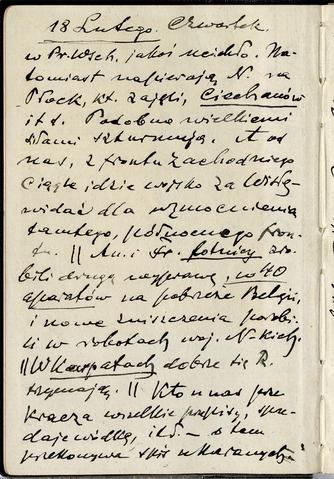 18 Lutego. Czwartek.
w Pr. Wsch. jakoś ucichło. Na-
tomiast napierają N. na
Płock, kt. zajęli, Ciechanów
itd. Podobno wielkiemi
siłami szturmują. U od
nas, z frontu zachodniego
ciągle idzie wojsko za Wisłę
widać dla wzmocnienia
tamtego, północnego fron-
tu. || An. i Fr. lotnicy zro-
bili drugą wyprawę, w 40
aparatów na pobrzeże Belgii,
i nowe zniszczenia porobi-
li w robotach woj. N-kich.
|| W Karpatach dobrze się R.
trzymają. || Kto u nas prze
kracza wielkie przepisy, sprze-
daje wódkę, itd. – o tem
przekonywa spis ukaranych